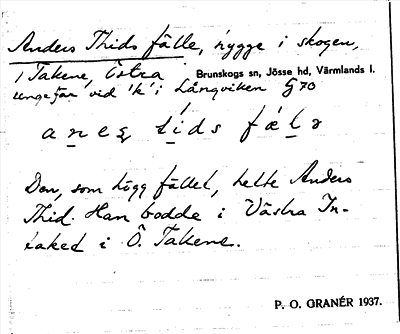 Anders Thids fälle, hygge i skogen,
i Takene, Östra Brunskogs sn, Jösse hd, Värmlands l.
ungefär vid 'k' i Långviken G 70
tids
Den, som högg fället, hette Anders
Thid. Han bodde i Västra In-
taked i Ö. Takene.
P. O. GRANÉR 1937.